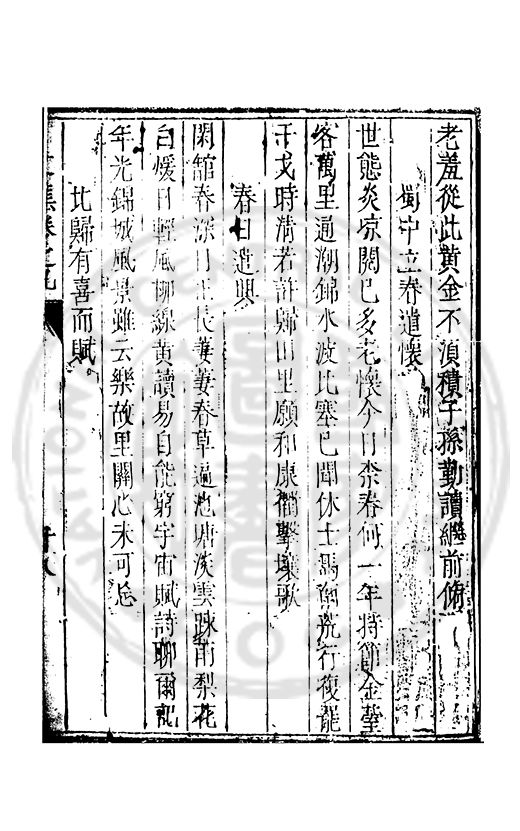 老羞從此黄金不湏積子孫勤讀繼前脩
蜀中立春遣懷
世態炎凉閱已多老懷今日柰春何一年持節金臺
客萬里通潮錦水波北塞已聞休士馬南荒行復罷
干戈時清若許歸田里願和康衢擊壤歌
春日遣興
閑舘春深日正長萋萋春草遍池塘淡雲踈雨梨花
白煖日輕風柳線黄讀易自能窮宇宙賦詩聊爾記
年光錦城風景雖云樂故里關心未可忘
北歸有喜而賦
集卷之九
十八